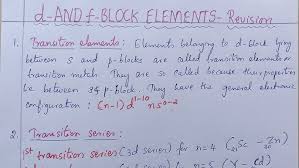 d-AND f-BLOCK ELEMENTS - Revision
1. Transition elements: Elements belonging to d-block lying
between s and p-blocks are called transition elements or
transition metals. They are so called because their properties
lie between s & p-block. They have the general electronic
configuration : (n-1) d¹⁻¹⁰ ns⁰⁻²
2. Transition series:
1st transition series (3d series) for n=4 (₂₁Sc - ₃₀Zn)